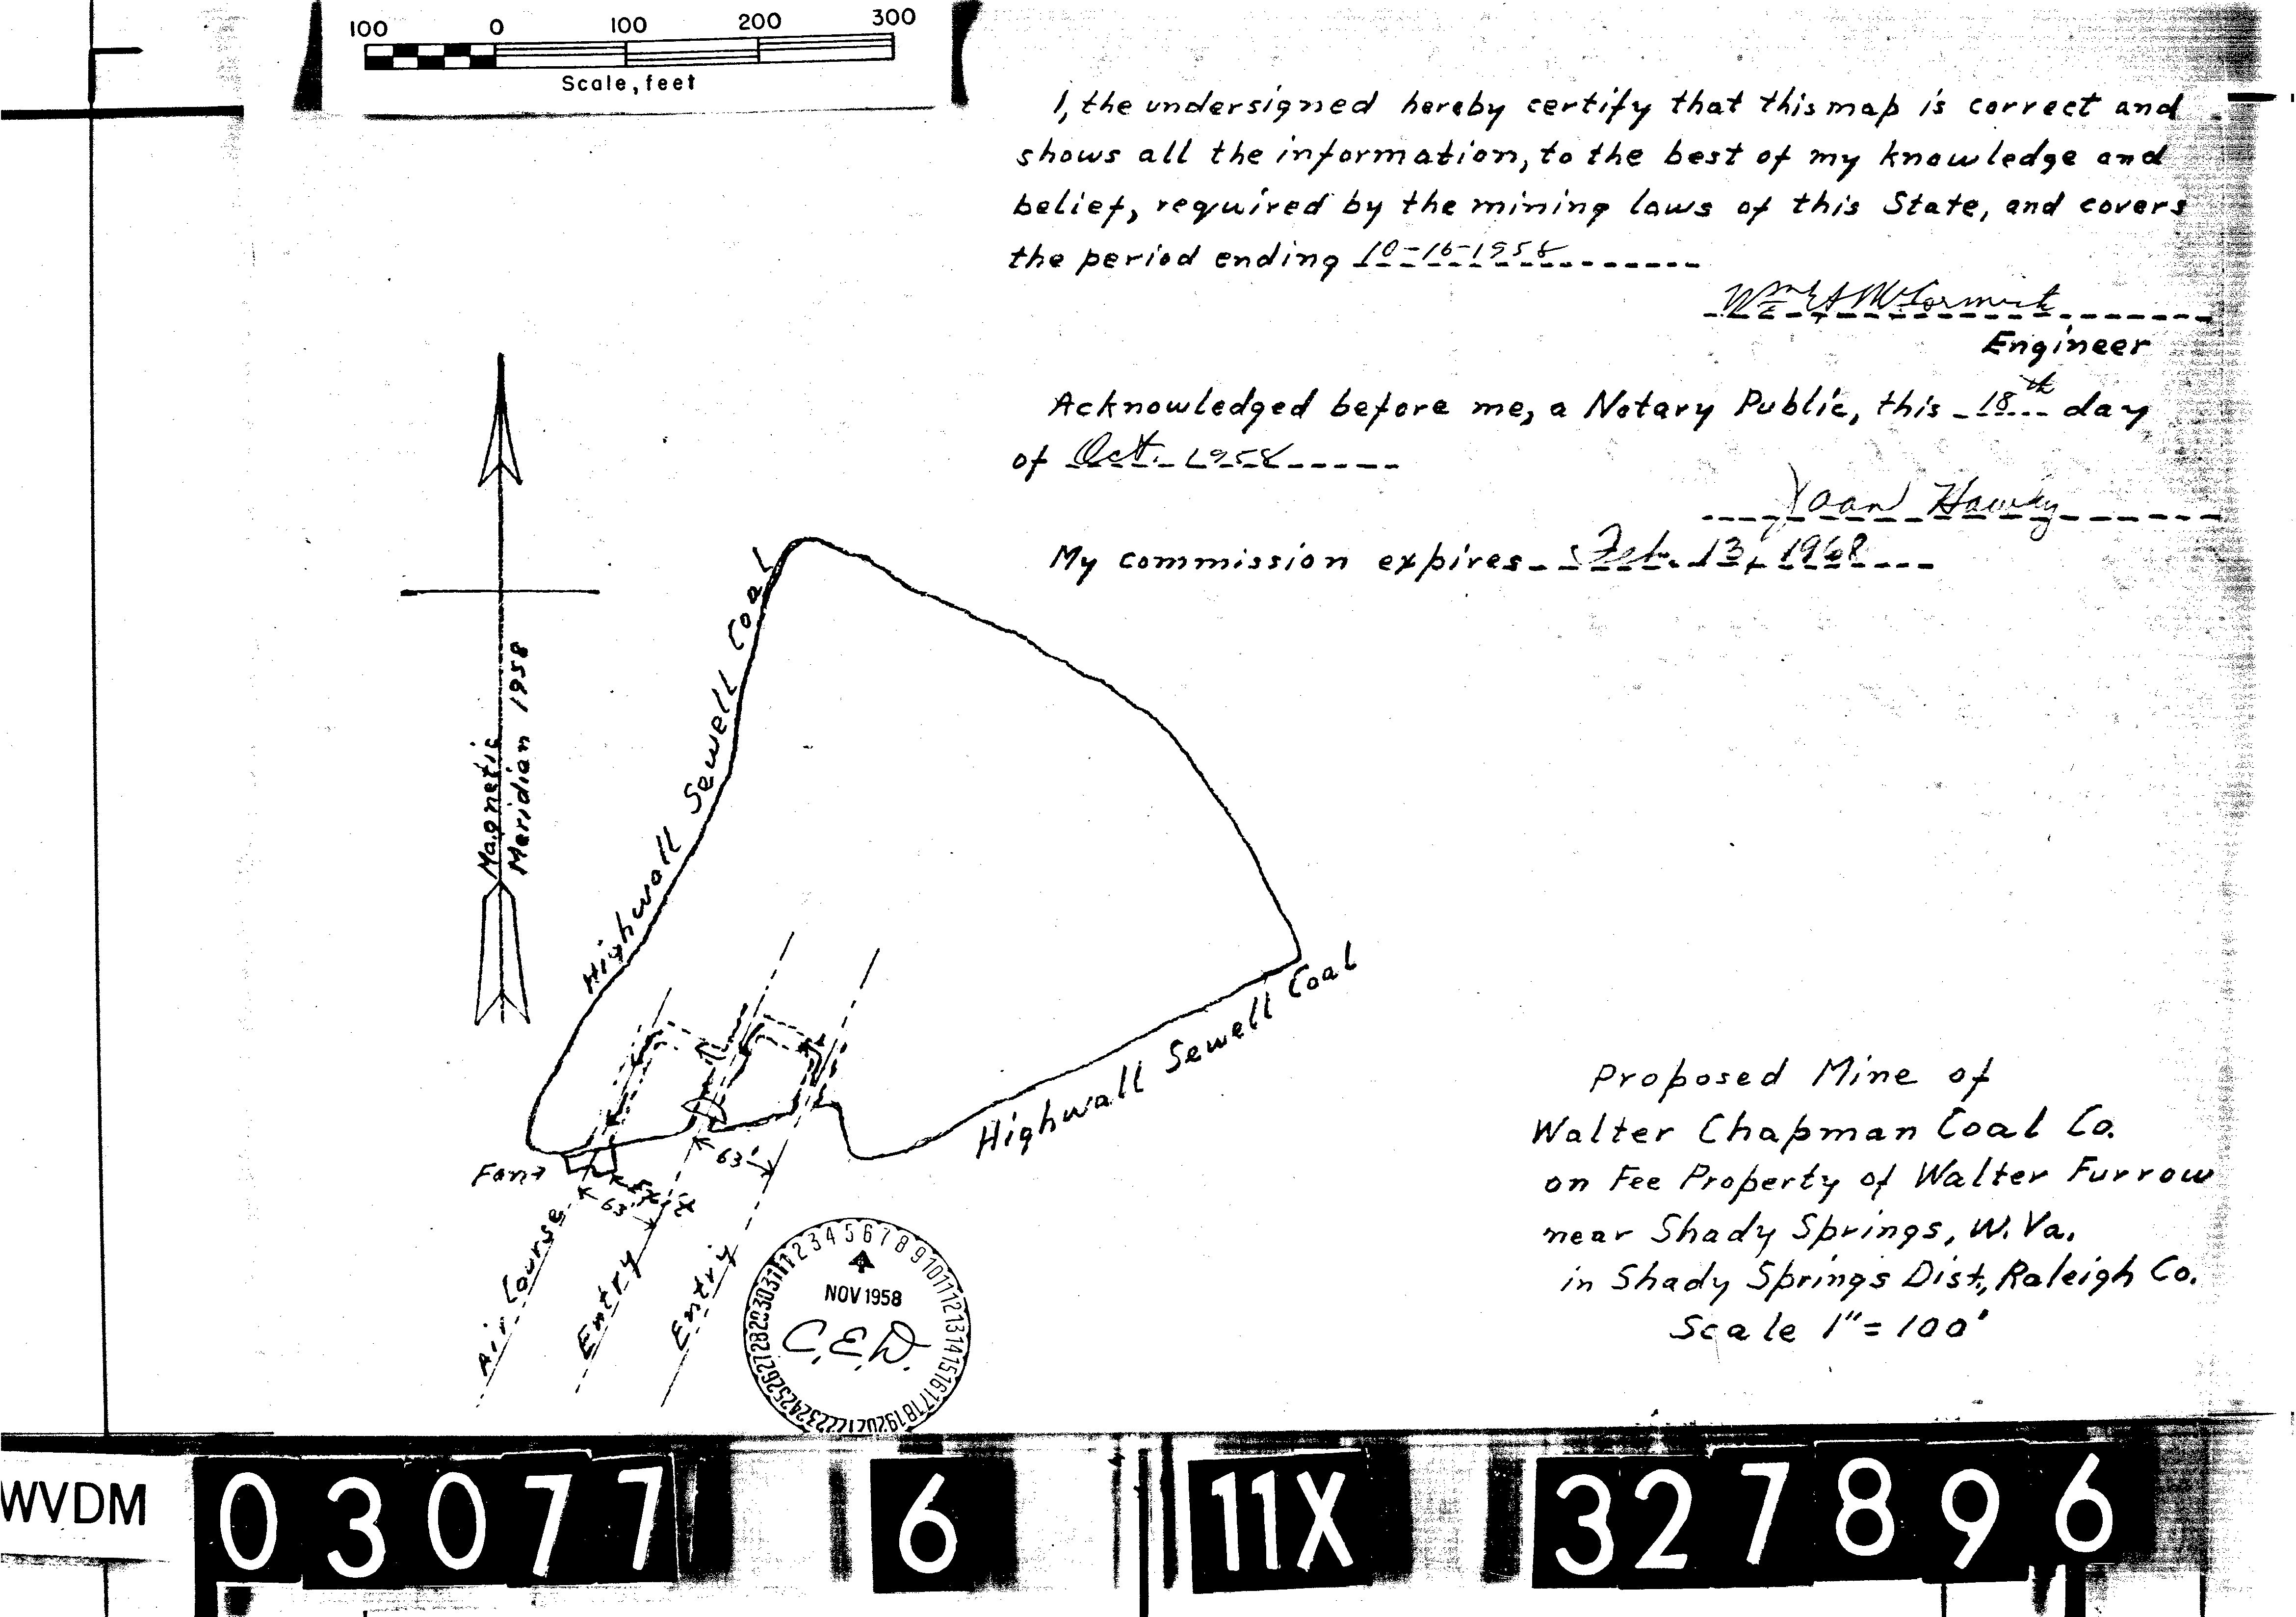 100 0 100 200 300
Scale, feet
I, the undersigned hereby certify that this map is correct and
shows all the information, to the best of my knowledge and
belief, required by the mining laws of this State, and covers
the period ending 10-16-1958
Engineer
Acknowledged before me, a Notary Public, this 18th day
of Oct. 1958
Joan
My commission expires Feb. 13, 1968
Magnetic
Meridian 1958
Highwall Sewell Coal
Highwall Sewell Coal
Fan
63'
63'
Air Course
Entry
Entry
1 2 3 4 5 6 7 8 9 10 11 12 13 14 15 16 17 18 19 20 21 22 23 24 25 26 27 28 29 30 31
NOV 1958
C.E.D.
Proposed Mine of
Walter Chapman Coal Co.
on Fee Property of Walter Furrow
near Shady Springs, W. Va.
in Shady Springs Dist., Raleigh Co.
Scale 1" = 100'
WVDM 03077 6 11X 327896